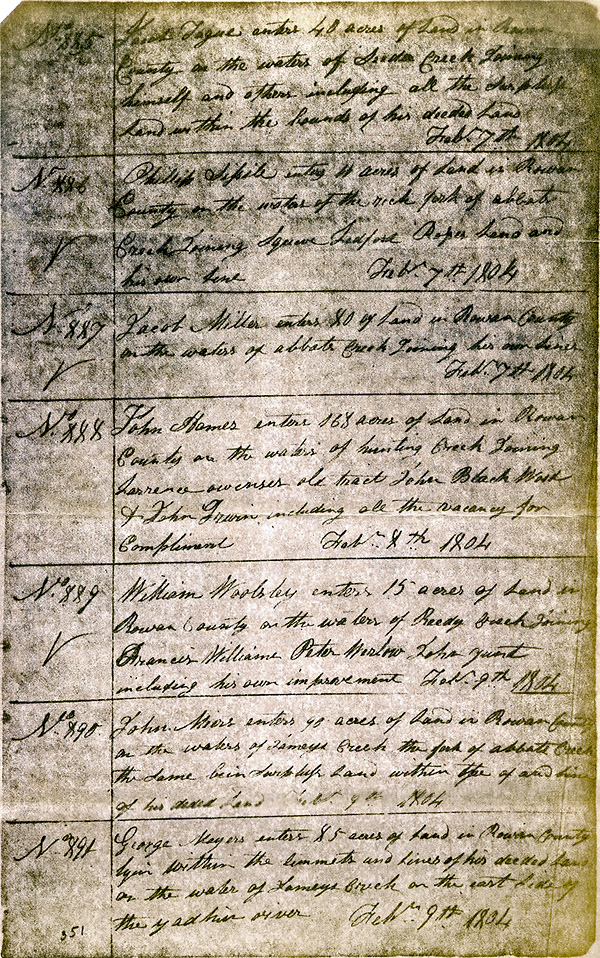 No. 885 Teague enters 48 acres of Land in Rowan
County on the waters of Creek Joining
himself and others including all the Surpluss
Land within the bounds of his deeded Land
Feb. 7th 1804
No. 886 Phillip Sipile enters 11 acres of Land in Rowan
County on the waters of the rich fork of abbats
Creek Joining Squire Ledford Roper Land and
his own line Feb. 7th 1804
No. 887 Jacob Miller enters 80 of Land in Rowan County
on the waters of abbats Creek Joining his own lines
Feb. 7th 1804
No. 888 John Hames enters 168 acres of Land in Rowan
County on the waters of hunting Creek Joining
Larrence owenses old tract John Black Wood
& John Irwin including all the vacancy for
Compliment Feb. 8th 1804
No. 889 William Woolsley enters 15 acres of Land in
Rowan County on the waters of Reedy Creek Joining
Francis Williams Peter Werlow John
including his own improvement Feb. 9th 1804
No. 890 John Miers enters 90 acres of Land in Rowan County
on the waters of Creek the fork of abbats Creek
the Same bein Surpluss Land within the of and lines
of his deded Land Feb. 9th 1804
No. 891 George Mayers enters 85 acres of Land in Rowan County
lyin within the limmets and Lines of his deeded Land
on the water of Creek on the east Side of
the yadkin river Feb. 9th 1804
351